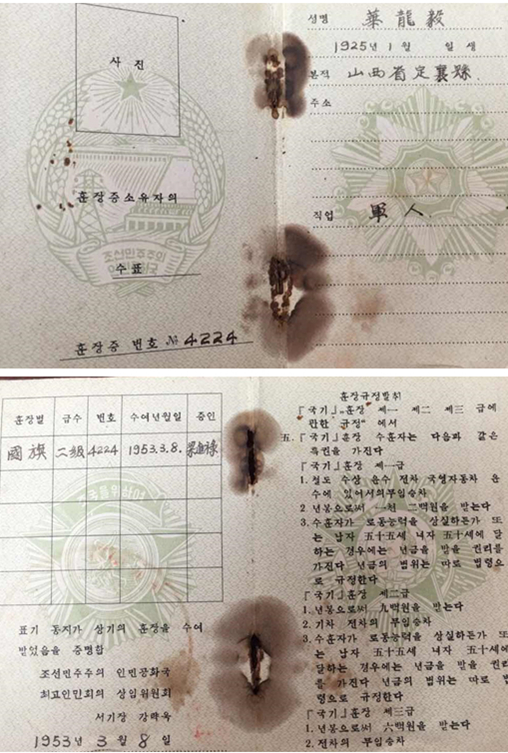 사 진
훈장증소유자의
수표
훈장증 번호 № 4224
성명 華龍毅
1925년 1월 일 생
본적 山西省定襄縣
주소
직업 軍人
조선민주주의
훈장별 급수 번호 수여년월일 증인
國旗 二級 4224 1953.3.8.
표기 동지가 상기의 훈장을 수여
받었음을 증명함
조선민주주의 인민공화국
최고인민회의 상임위원회
서기장 강량욱
1953년 3월 8일
훈장규정발취
『국기』훈장 제一 제二 제三급에
관한 규정" 에서
五. 『국기』훈장 수훈자는 다음과 같은
특권을 가진다
『국기』훈장 제一급
1. 철도 수상 운수 전차 국영자동차 운
수에 있어서의무임승차
2. 년봉으로써 一천 二백원을 받는다
3. 수훈자가 로동능력을 상실하든가 또
는 남자 五十五세 녀자 五十세에 달
하는 경우에는 년금을 받을 권리를
가진다 년금의 범위는 따로 법령으
로 규정한다
『국기』훈장 제二급
1. 년봉으로써 九백원을 받는다
2. 기차 전차의 무임승차
3. 수훈자가 로동능력을 상실하든가 또
는 남자 五十五세 녀자 五十세에
달하는 경우에는 년금을 받을 권리
를 가진다 년금의 범위는 따로 법
령으로 규정한다
『국기』훈장 제三급
1. 년봉으로써 六백원을 받는다
2. 전차의 무임승차